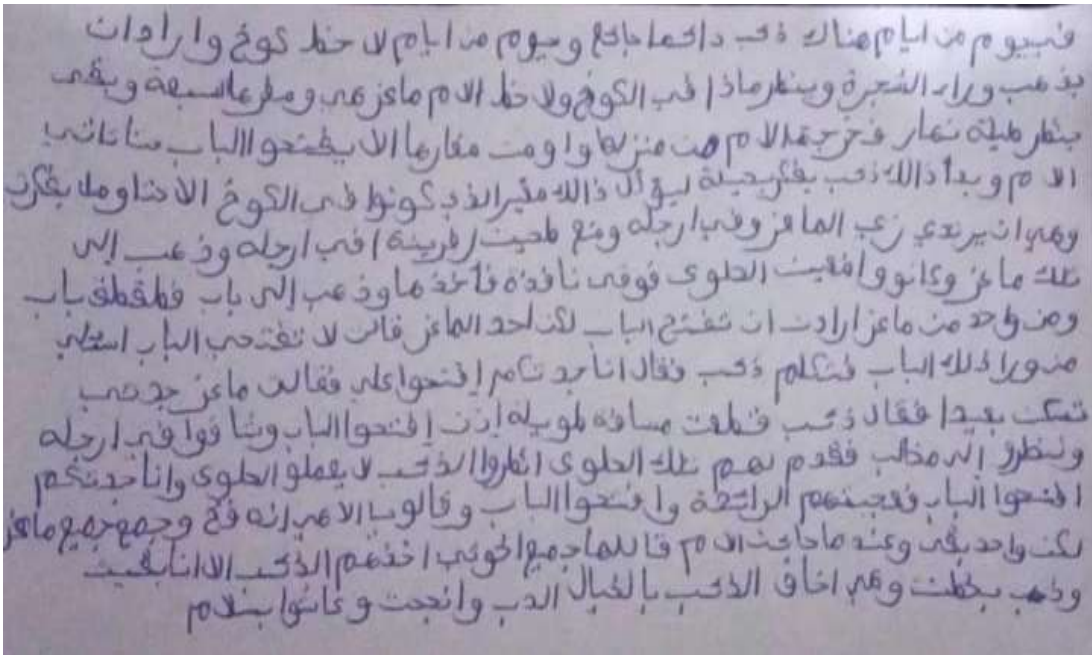 في يوم من ايام هناك ذئب دائما جائع ويوم من ايام لا حظ كوخ وارادات
يذهب وراء الشجرة وينظر ماذا في الكوخ ولا حظ الام ماعز هي وصغرها سبعة وبقى
ينظر طيلة نهار فخرجة الام من منزلها واومت صغارها الا يفتحوا الباب متاتاتي
الام وبدأ ذالك ذئب يفكر بحيلة ليؤكل ذالك الذي كونوا في الكوخ
وهي ان يرتدي زي الماعز وفي ارجله وضع طحين (فرينة) في ارجله وذهب إلى
تلك ماعز وكانو وافقيت الحلوى فوقى نافذة فأخذها وذهب إلى باب فطقطق باب
ومن واحد من ماعز ارادت ان تفتح الباب لكن احد الماعز قالت لا تفتحي الباب اسئلي
من وراء ذلك الباب فتكلم ذئب فقال انا جدتكم إفتحوا علي فقالت ماعز جدتي
تسكن بعيدا فقال ذئب قطعت مسافة طويلة إذن إفتحوا الباب وشافوا في ارجله
ولنظرو إلى مخالب فقدم لهم تلك الحلوى انظروا الذئب لا يعملو الحلوى وانا جدتكم
افتحوا الباب فعجبتهم الرائحة وافتحوا الباب وقالو يا الاهي إنه فخ وجمع جميع ماعز
لكن واحد بقى وعند ما جاءت الام قا للها جميع اخوتي اخذهم الذئب الا انا بقيت
وذهب بخطت وهي اخاف الذئب بالخيال الدب وانجحت وعاشوا بسلام